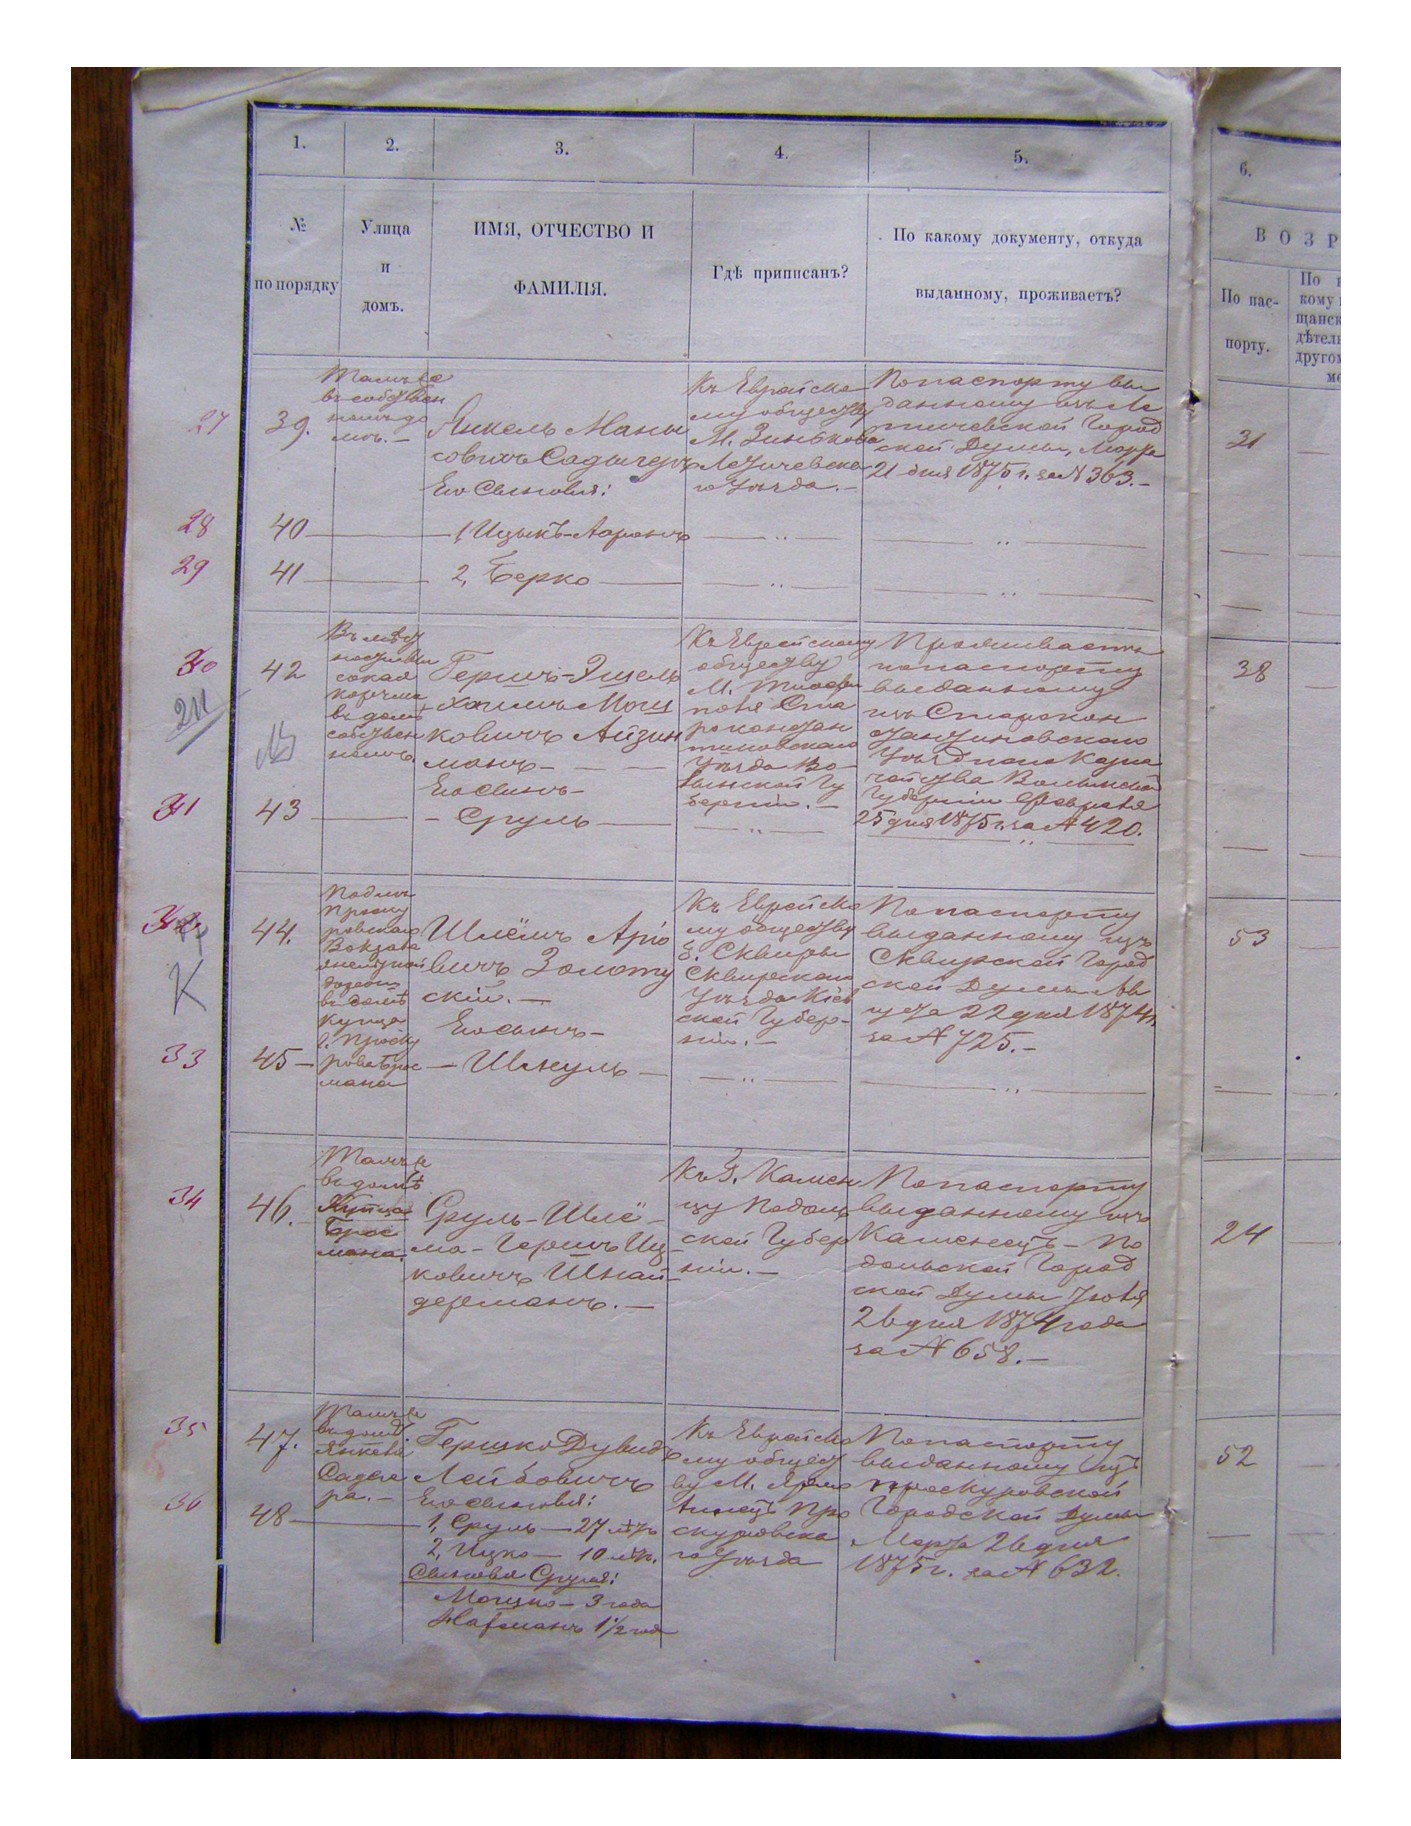 1.
2.
3.
4.
5.
6.
№
по порядку
Улица
и
домъ.
ИМЯ, ОТЧЕСТВО И
ФАМИЛІЯ.
Гдѣ приписанъ?
По какому документу, откуда
выданному, проживаетъ?
ВОЗР
По пас-
порту.
По к
кому
щанск
дѣтел
другом
ме
27
39.
Тамъ же
въ собствен
номъ до
мѣ. —
Янкель Маньі
совичъ
Его сыновья:
Къ Еврейско
му обществу
М. Зинькова
Летичевска
го уѣзда. —
По паспорту вы
данному изъ Ле
тичевской Город
ской Думы, Марта
21 дня 1875 г. за № 363. —
31
28
40
1, Ицыкъ-Ааронъ
29
41
2, Берко
30
211
42
въ домѣ
собствен
номъ
Гершъ-
Хаимъ Мош
ковичъ Айзин
манъ —
Его сынъ —
Къ Еврейскому
обществу
М.
поля Ста
роконстан
тиновскаго
Уѣзда Во
лынской Гу
берніи. —
Проживаетъ
по паспорту
выданному
изъ Старокон
стантиновскаго
Уѣзднаго Казна
чейства Волынской
Губерніи Февраля
25 дня 1875 г. за № 420.
38
31
43
— Сруль —
44.
К
Подлѣ
Проску
ровскаго
Вокзала
желѣзной
дороги
въ домѣ
купца
г. Проску
рова Грос
мана
Шлёмъ Аріо
вичъ Золоту
скій. —
Его сынъ —
Къ Еврейско
му обществу
г. Сквиры
Сквирскаго
Уѣзда Кіев
ской Губер-
ніи. —
По паспорту
выданному изъ
Сквирской Город
ской Думы Ав
густа 22 дня 1874 г.
за № 725. —
53
33
45 —
— Шмуль —
34
46.
Тамъ же
въ домѣ
Купца
Грос
мана.
Сруль-Шлё-
ма-Гершъ Иц-
ковичъ Шнай-
дерманъ. —
Къ г. Камен
цу Подоль
ской Губер
ніи. —
По паспорту
выданному изъ
Каменецъ-По
дольской Город
ской Думы Іюля
26 дня 1874 года
за № 658. —
24
35
47.
Тамъ же
въ домѣ
Янкеля
Гершко Дувидъ
Лейбовичъ
Его сыновья:
Къ Еврейско
му общест
ву М. Ярмо
линецъ Про
скуровска
го Уѣзда
По паспорту
выданному изъ
Проскуровской
Городской Думы
Марта 26 дня
1875 г. за № 632.
52
36
48
1, Сруль — 27 лѣтъ
2, Ицко — 10 лѣтъ.
Сыновья Сруля:
Мошко — 3 года
1½ года